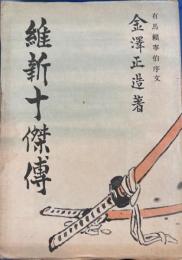 有馬頼寧伯序文
金澤正造著
維新十傑傳